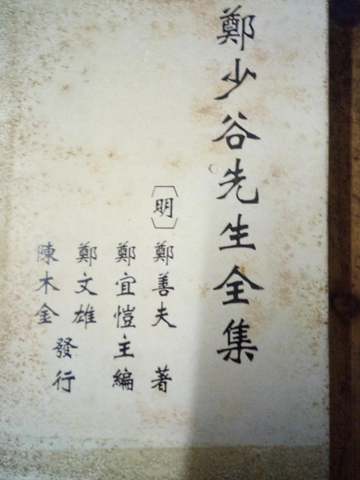 鄭少谷先生全集
〔明〕鄭善夫 著
鄭宜愷主編
鄭文雄 發行
陳木金